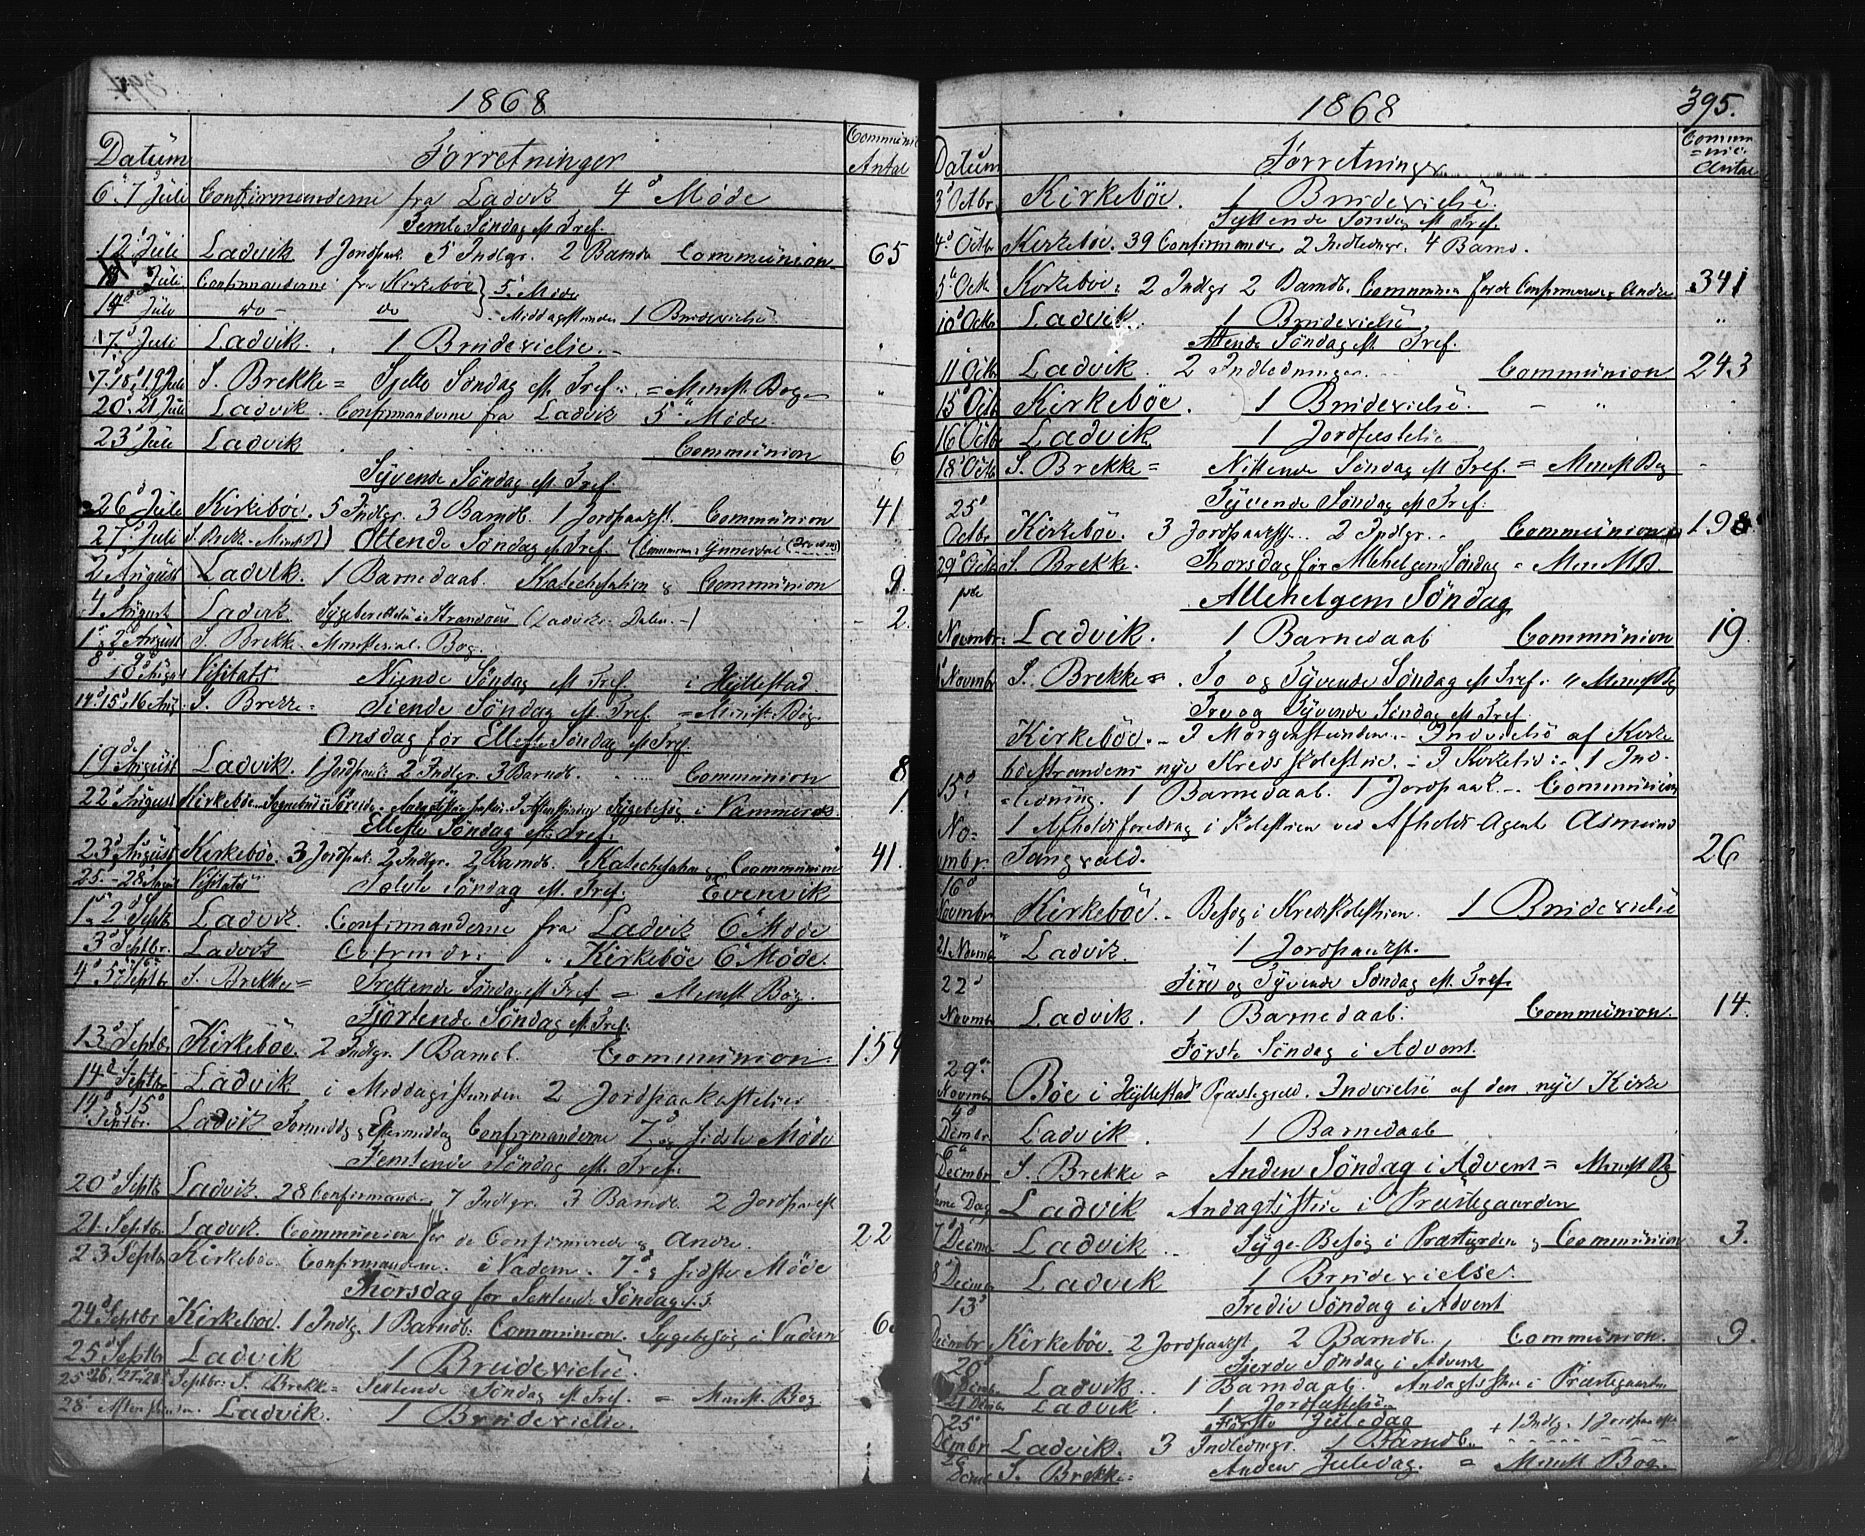 1868
Datum Forretninger Communic Antal
6. 7 Juli Confirmanderne fra Ladvik 4d Møde
Femte Søndag eft Tref.
12 Juli Ladvik 1 Jordpaak. 5 Indlgr. 2 Barnda Communion 65
Juli Confirmanderne fra Kirkebøe 5 Møde
14 Juli do do Middagsstunden 1 Brudevielse
17. Juli Ladvik. 1 Brudevielse.
17. 18. 19 Juli S. Brekke = Sjette Søndag eft Tref. = Minist. Bog
20. 21 Juli Ladvik. Confirmanderne fra Ladvik 5 Møde
23 Juli Ladvik Communion 6
Syvende Søndag eft Tref
26 Juli Kirkebøe. 5 Indlgr. 3 Barndb. 1 Jordpaakst. Communion 41
27. Juli S. Brekke - Minist Ottende Søndag eft Tref
2 August Ladvik. 1 Barnedaab. Katechisation & Communion 9.
4 August Ladvik Sygeberettelse i (Ladviks Dalen -) 2.
1. 2 August S. Brekke Ministerial Bog.
8 9 10 Augu Visitats Niende Søndag eft Tref i Hyllestad
14. 15. 16 Aug. S. Brekke = Tiende Søndag eft Tref. = Minist Bog
Onsdag før Ellefte Søndag eft Tref.
19 August Ladvik. 1 Jordpaak. 2 Indlgr. 3 Barndb. Communion 8
22 August Kirkebøe Sygebesøg i
Ellefte Søndag eft Tref.
23 August Kirkebøe. 3 Jordpak. 2 Indgr. 2 Barndb. Katechisation og Communion 41.
25. - 28 August Visitats Tolvte Søndag eft. Tref. Evenvik
1. 2 Septb Ladvik. Confirmanderne fra Ladvik 6 Møde
3 Septbr. Ladvik Cofrmdr: " Kirkebøe 6 Møde.
4 5 6 Septbr S. Brekke = Trettende Søndag eft Tref = Minist Bog.
Fjortende Søndag eft. Tref.
13 Septb Kirkebøe. 2 Indgr. 1 Barneb. Communion.
14 Septbr Ladvik i Middagsstunden 2 Jordpaakastelser
14 & 15 Septbr. Ladvik Formiddag & Eftermiddag Confirmanderne 7 og sidste Møde
Femtende Søndag eft. Tref.
20 Septb Ladvik. 28 Confirmander 7 Indgr. 3 Barndb. 2 Jordpakst
21. Septbr. Ladvik Communion for de Confirmerede & Andre. 22
23 Septbr Kirkebøe. Confirmandern. i Vadem. 7. & sidste Møde
Thorsdag før Sextende Søndag e. T.
24 Septbr Kirkebøe. 1 Indlg. 1 Barndb. Communion. Sygebesøg i Vadem
25 Septbr Ladvik 1 Brudevielse.
25 26. 27. 28. Septbr: S. Brekke = Sextende Søndag eft Tref. = Minist. Bog
28 Aftenstunden. Ladvik. 1 Brudevielse.
1868 395.
Datum Forretninger Commu=nic. Antal
3 Octbr. Kirkebøe. 1 Brudevielse.
Syttende Søndag eft Tref.
4. Octbr Kirkebøe. 39 Confirmander 2 Indledngr. 4 Barnd.
5 Octb Kirkebøe: 2 Indgr 2 Barndb. Communion for de Confirmerede & Andre 341
10 Octbr Ladvik. 1 Brudevielse
Attende Søndag eft Tref.
11 Octbr Ladvik. 2 Indledninger. Communion 243
15 Octb Kirkebøe. 1 Brudevielse.
16 Octbr Ladvik 1 Jordfæstelse
18 Octbr S. Brekke = Nittende Søndag eft Tref. = Minist Bog
Tyvende Søndag eft Tref.
25 Octbr. Kirkebøe. 3 Jordpaakst. 2 Indgr. Communion 198
29 Octb S Brekke. Thorsdag før Allehelgens Søndag = Minist Bd.
Allehelgens Søndag
Novembr. Ladvik. 1 Barnedaab Communion 19.
Novmbr S. Brekke = To og Tyvende Søndag eft Tref. = Minist Bg
Tre og Tyvende Søndag eft Tref
15. Novmbr. Kirkebøe. I Morgenstunden - Indvielse af Kirke
bøestrandens nye Kreds Skolestue. - I Kirken: 1 Ind
=ledning. 1 Barnedaab. 1 Jordpaak. Communion
1 Afholdsforedrag i Skolestuen ved Afholds Agent Asmund
Sangvald. 26
16 Novmbr Kirkebøe. Besøg i Kredsskolestuen. 1 Brudevielse
21 Novmbr Ladvik. 1 Jordpaakst.
Fire og Tyvende Søndag eft. Tref.
22 Novmbr Ladvik. 1 Barnedaab. Communion. 14.
Første Søndag i Advent.
29. Novmbr Bøe i Hyllestad Præstegjeld. Indvielse af den nye Kirke
4 Decmbr Ladvik. 1 Barnedaab
6 Decmbr S. Brekke = Anden Søndag i Advent = Minist Bg
samme Dag Ladvik Andagtstime i Præstegaarden
7 Decmbr Ladvik Syge-Besøg i Præstgrden & Communion 3.
8 Decmbr Ladvik 1 Brudevielse.
13 Tredie Søndag i Advent
Decmbr Kirkebøe. 2 Jordpaakst 2 Barndb. Communion. 9.
Fjerde Søndag i Advent
20 Decmbr Ladvik. 1 Barndaab. Andagtstime i Præstegaarden
21 Decmbr Ladvik. 1 Jordfæstelse
25 Første Juledag + 1 Indlg. 1 Jordpaakst
Decmbr Ladvik. 3 Indledngr. 1 Barndb.
26 Decmbr S. Brekke = Anden Juledag. = Minist Bog.